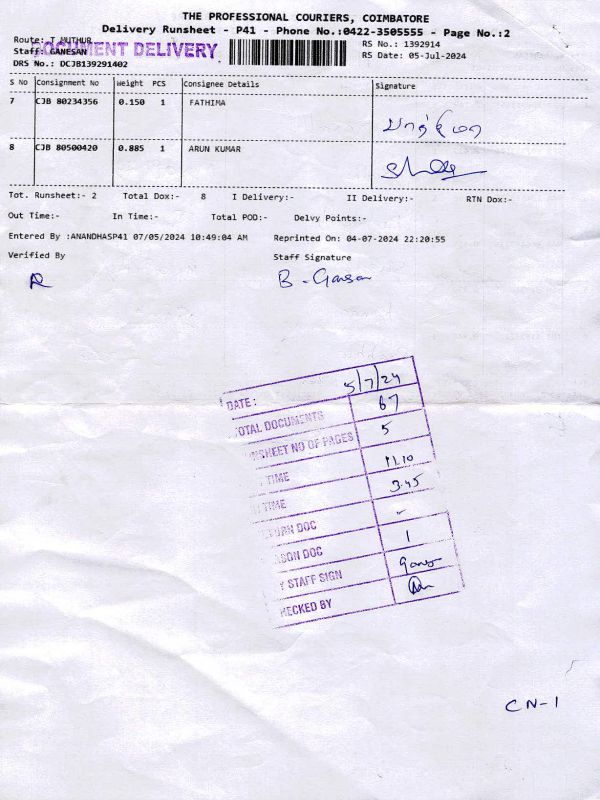 THE PROFESSIONAL COURIERS, COIMBATORE
Delivery Runsheet - P41 - Phone No.:0422-3505555 - Page No.:2
Route: T MUTHUR
DOCUMENT DELIVERY
Staff: GANESAN
DRS No.: DCJB139291402
RS No.: 1392914
RS Date: 05-Jul-2024
S No Consignment No Weight PCS Consignee Details Signature
7 CJB 80234356 0.150 1 FATHIMA
பாத்திமா
8 CJB 80500420 0.885 1 ARUN KUMAR
Tot. Runsheet:- 2 Total Dox:- 8 I Delivery:- II Delivery:- RTN Dox:-
Out Time:- In Time:- Total POD:- Delvy Points:-
Entered By :ANANDHASP41 07/05/2024 10:49:04 AM Reprinted On: 04-07-2024 22:20:55
Verified By Staff Signature
R B - Ganesan
DATE : 5/7/24
TOTAL DOCUMENTS 67
NSHEET NO OF PAGES 5
TIME 11.10
TIME 3.45
URN DOC -
SON DOC 1
Y STAFF SIGN Ganes
HECKED BY
CN-1